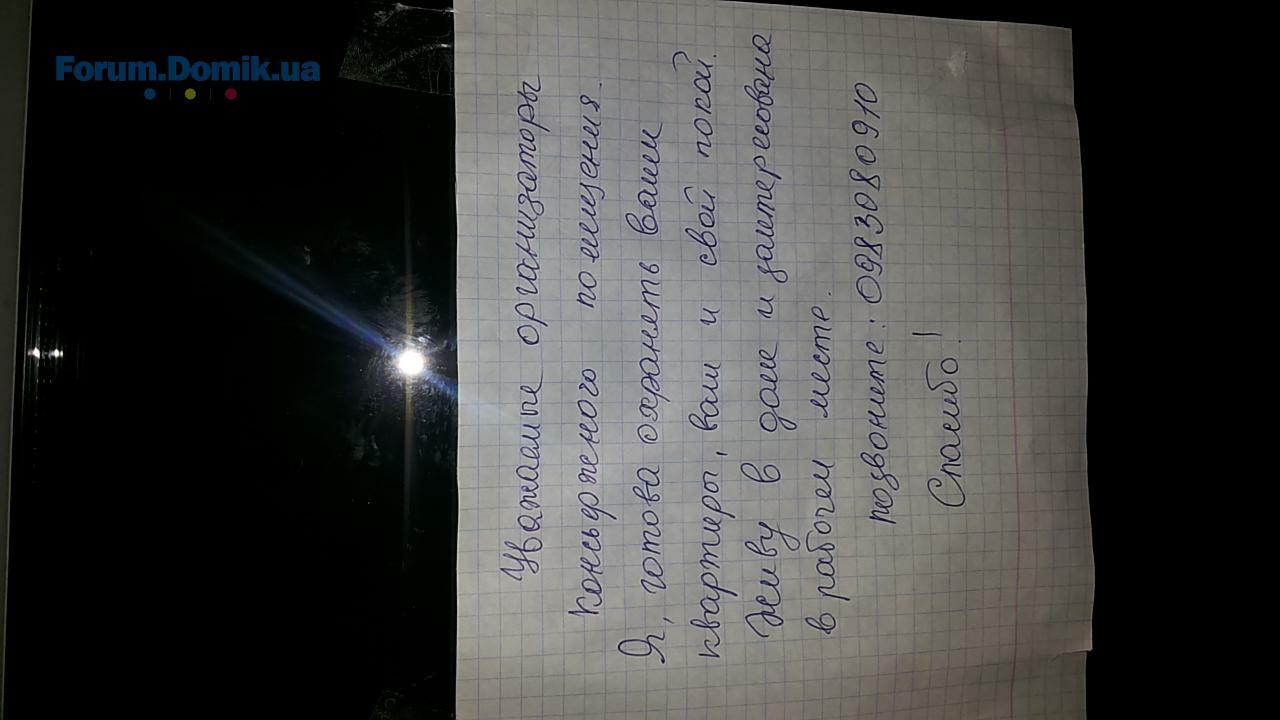 Forum.Domik.ua
Уважаемые организаторы
Консьержного помещения.
Я, готова охранять ваши
квартеры, ваш и свой покой.
Живу в доме и заинтересована
в рабочем месте.
позвоните: 0983080910
Спасибо!